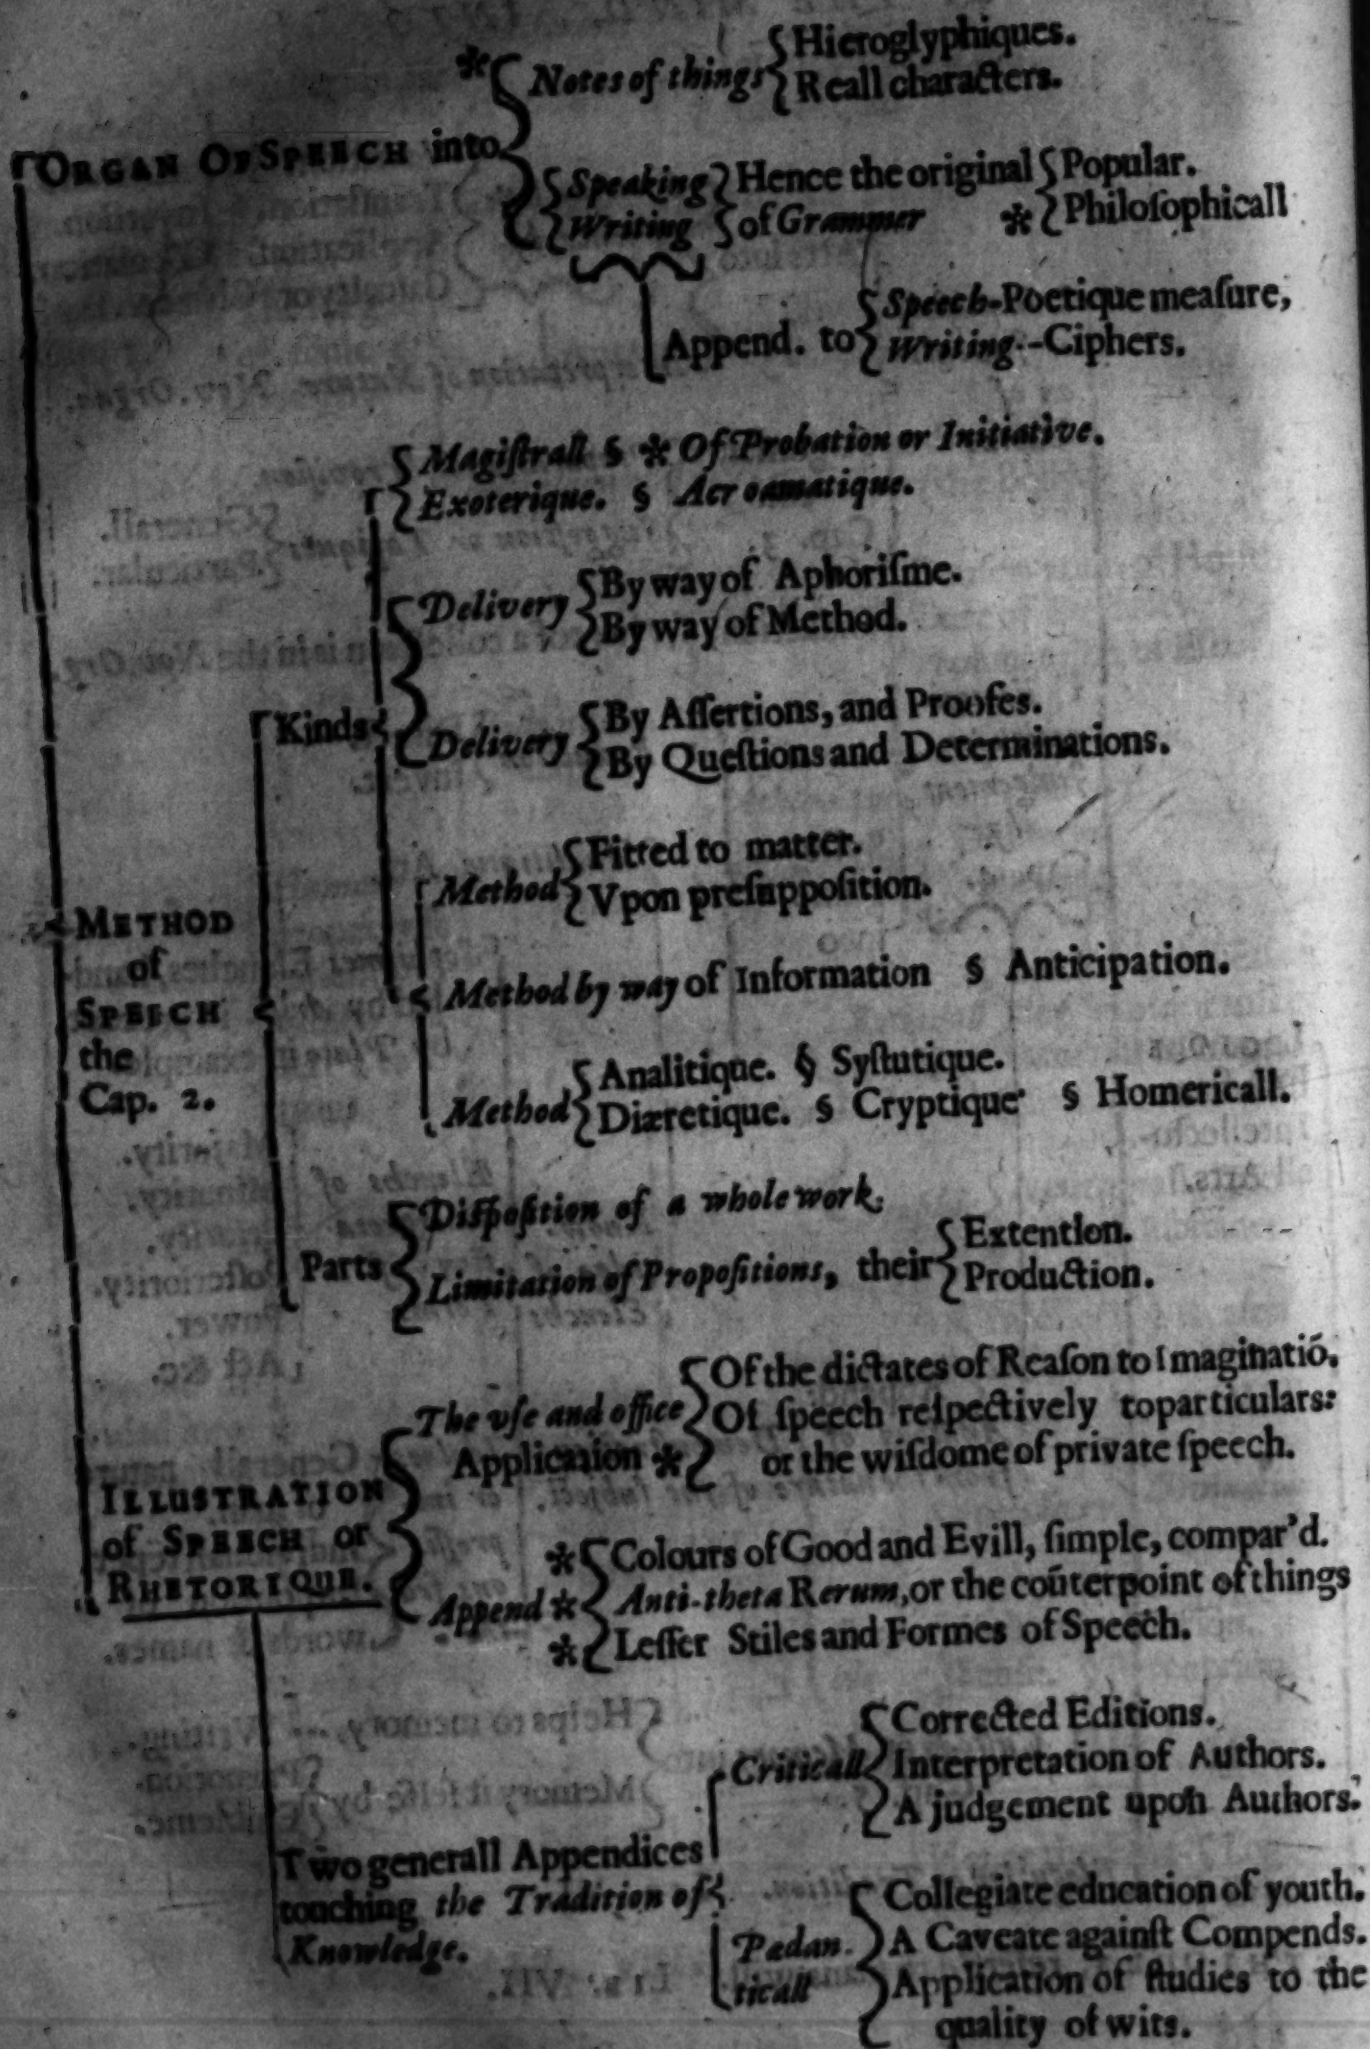 * Notes of things { Hieroglyphiques.
Reall characters.
ORGAN OF SPEECH into
Speaking } Hence the original { Popular.
Writing } of Grammer * { Philoſophicall
Append. to { Speech-Poetique meaſure,
Writing--Ciphers.
Magiſtrall § * Of Probation or Initiative.
Exoterique. § Acroamatique.
Delivery { By way of Aphoriſme.
By way of Method.
Kinds
Delivery { By Aſſertions, and Proofes.
By Queſtions and Determinations.
Method { Fitted to matter.
Vpon preſuppoſition.
METHOD
of
SPEECH
the
Cap. 2.
Method by way of Information § Anticipation.
Method { Analitique. § Syſtutique.
Diæretique. § Cryptique. § Homericall.
Parts { Diſpoſition of a whole work.
Limitation of Propoſitions, their { Extention.
Production.
ILLUSTRATION
of SPEECH or
RHETORIQUE.
The vſe and office { Of the dictates of Reaſon to Imaginatiō.
Application * { Of ſpeech reſpectively to particulars:
or the wiſdome of private ſpeech.
Append * { Colours of Good and Evill, ſimple, compar'd.
* Anti-theta Rerum, or the coūterpoint of things
* Leſſer Stiles and Formes of Speech.
Two generall Appendices
touching the Tradition of
Knowledge.
Criticall { Corrected Editions.
Interpretation of Authors.
A judgement upon Authors.
Pædan-
ticall
Collegiate education of youth.
A Caveate againſt Compends.
Application of ſtudies to the
quality of wits.